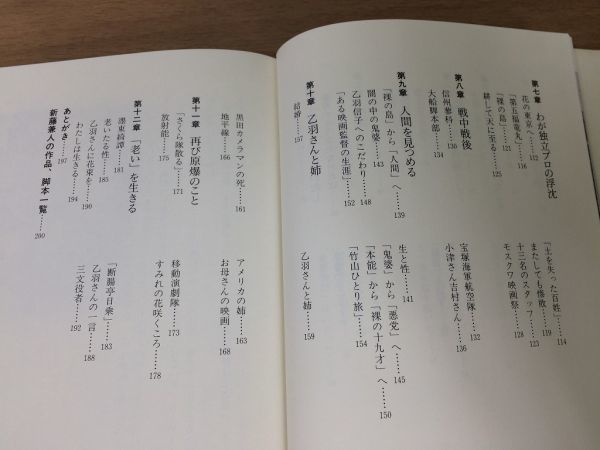 第七章 わが独立プロの浮沈
花の東京へ……112
「土を失った百姓」……114
「第五福竜丸」……116
またしても惨敗……119
「裸の島」……121
十三名のスタッフ……123
耕して天に至る……125
モスクワ映画祭……128
第八章 戦中戦後
信州蓼科……130
宝塚海軍航空隊……132
大船脚本部……134
小津さん吉村さん……136
第九章 人間を見つめる
「裸の島」から「人間」へ……139
生と性……141
闇の中の鬼婆……143
「鬼婆」から「悪党」へ……145
乙羽信子へのこだわり……148
「本能」から「裸の十九才」へ……150
「ある映画監督の生涯」……152
「竹山ひとり旅」……154
第十章 乙羽さんと姉
結婚……157
乙羽さんと姉……159
黒田カメラマンの死……161
アメリカの姉……163
地平線……166
お母さんの映画……168
第十一章 再び原爆のこと
「さくら隊散る」……171
移動演劇隊……173
放射能……175
すみれの花咲くころ……178
第十二章 「老い」を生きる
濹東綺譚……181
「断腸亭日乗」……183
老いたる性……185
乙羽さんの一言……188
乙羽さんに花束を……190
三文役者……192
わたしは生きる……194
あとがき……197
新藤兼人の作品、脚本一覧……200